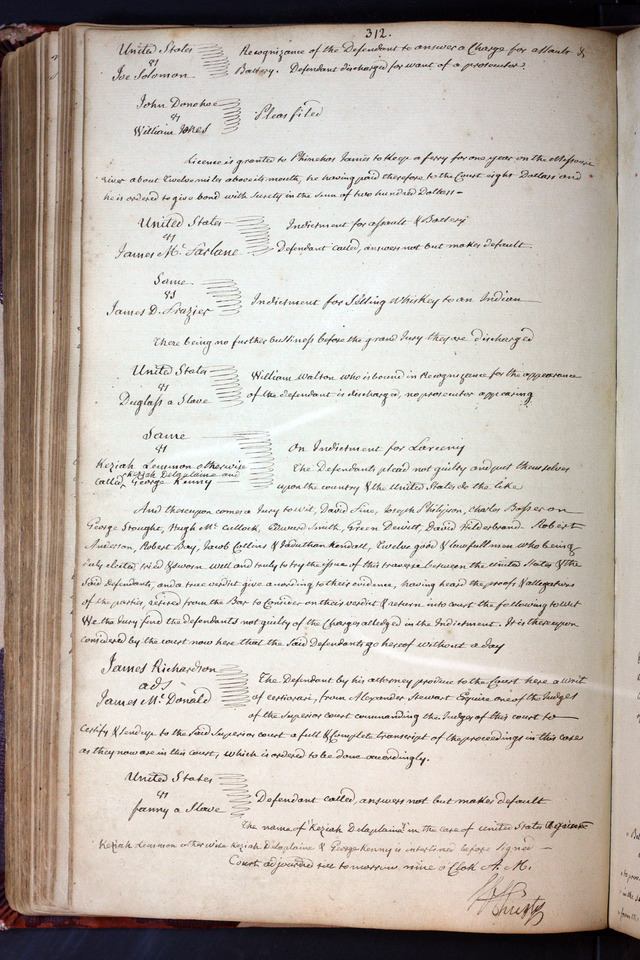 312.
United States
vs
Joe Solomon
Recognizance of the Defendant to answer a Charge for assault &
Battery. Defendant discharged for want of a prosecutor
John Donohoe
vs
William Jones
Pleas filed
Licence is granted to Phinehas James to keep a ferry for one year on the Missouri
river about twelve miles above its mouth, he having paid therefore to the Court eight Dollars and
he is ordered to give bond with surety in the sum of two hundred Dollars -
United States
vs
James Mc. Farlane
Indictment for assault & Battery
Defendant called, answers not but makes default
Same
vs
James D. Frazier
Indictment for Selling Whiskey to an Indian
There being no further business before the grand Jury they are discharged
United States
vs
Duglass a Slave
William Walton who is bound in Recognizance for the appearance
of the defendant is discharged, no prosecutor appearing
Same
vs
Keziah Lemmon otherwise
Keziah Delaplaine and
called George Kenny
On Indictment for Larceny
The Defendants plead not guilty and put themselves
upon the country & the United States do the like
And thereupon comes a Jury to wit, David Fine, Joseph Philipson, Charles Bosseron
George Stought, Hugh Mc. Cullock, Edward Smith, Green Dewitt, David Hilderbrand Robert
Anderson, Robert Bay, Jacob Collins & Jaduthan Kendall, twelve good & lawfull men who being
duly elected tried & sworn well and truly to try the issue of this traverse between the united States & the
Said Defendants, and a true verdict give according to their evidence, having heard the proofs & allegations
of the parties, retired from the Bar to Consider on their verdict & return into court the following to Wit
We the Jury find the defendants not guilty of the Charges alledged in the Indictment. It is thereupon
considered by the court now here that the Said Defendants go hereof without a day
James Richardson
ads
James Mc. Donald
The Defendant by his attorney produce to the Court here a writ
of certiorari, from Alexander Stewart Esquire one of the Judges
of the Superior court commanding the Judges of this court to
certify & send up to the Said Superior court a full & Complete transcript of the proceedings in this case
as they now are in this court, which is ordered to be done accordingly.
United States
vs
fanny a Slave
Defendant called, answers not but makes default
The name of "Keziah Delaplaine" in the case of united States against
Keziah Lemmon otherwise Keziah Delaplaine & George Kenny is interlined before Signed
Court adjourned till tomorrow, nine o'Clok A. M.
Christy